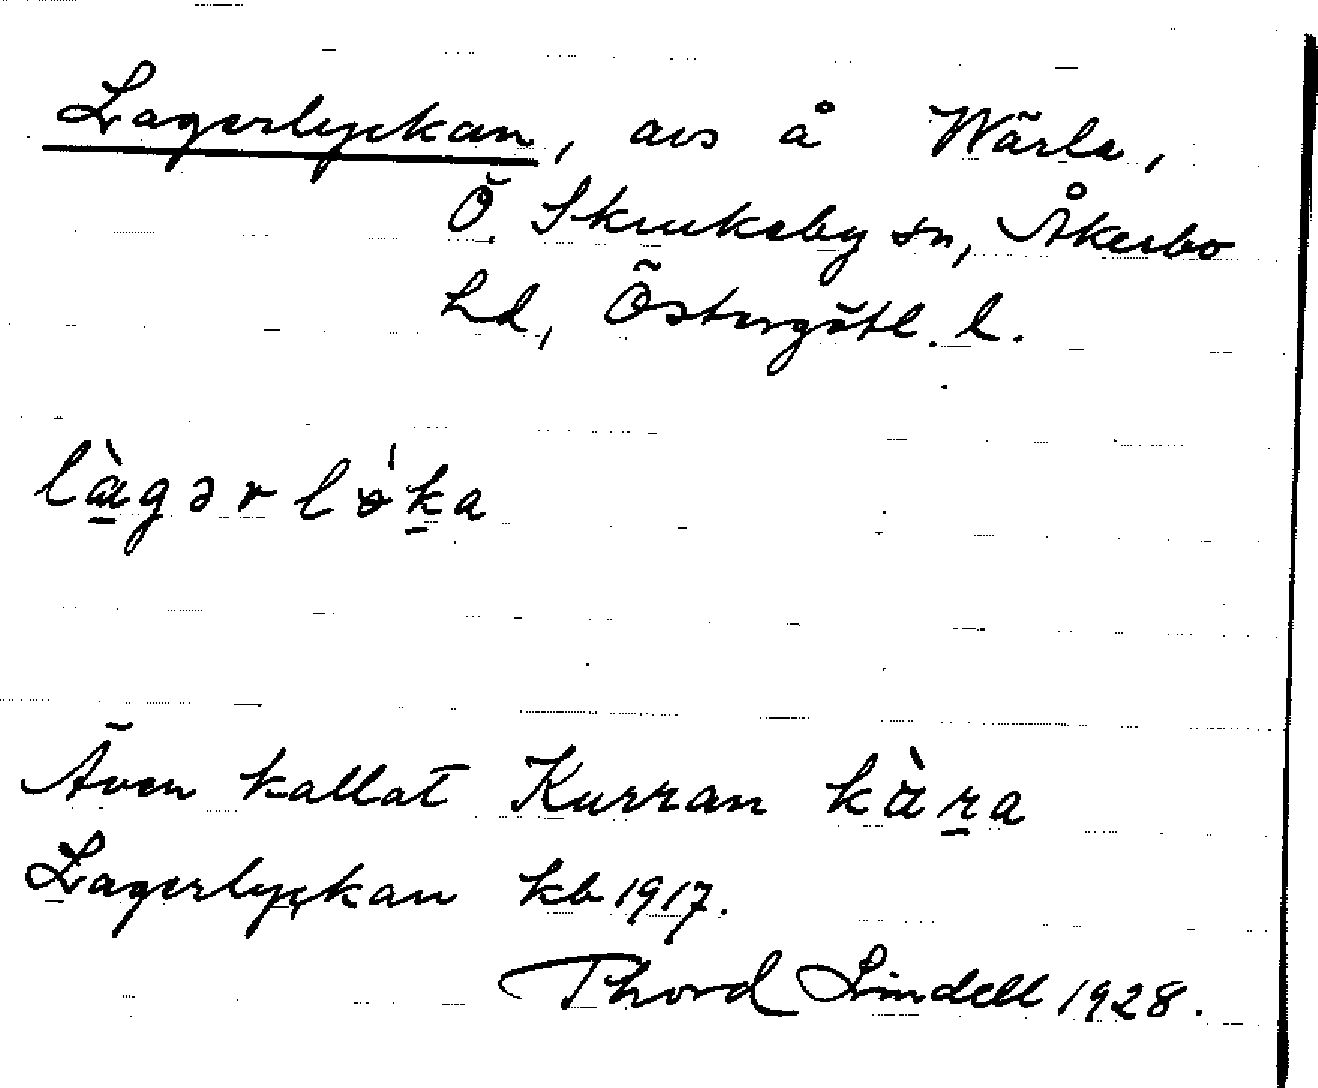 Lagerlyckan, avs å Wärla,
Ö. Skrukeby sn, Åkerbo
hd, Östergötl. l.
Även kallat Kurran
Lagerlyckan kb 1917.
Thord Lindell 1928.